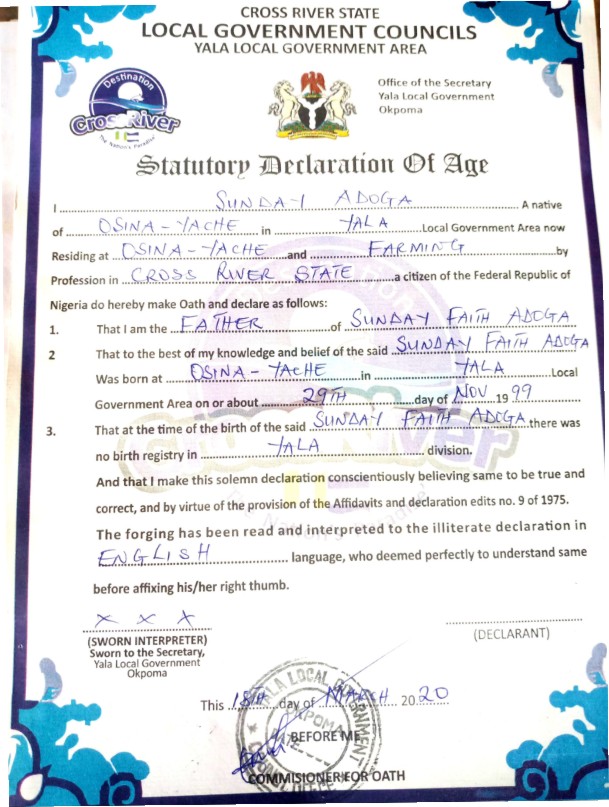 CROSS RIVER STATE
LOCAL GOVERNMENT COUNCILS
YALA LOCAL GOVERNMENT AREA
Destination
Cross River
The Nation's Paradise
Office of the Secretary
Yala Local Government
Okpoma
Statutory Declaration Of Age
I SUNDAY ADOGA A native
of OSINA-YACHE in YALA Local Government Area now
Residing at OSINA-YACHE and FARMING by
Profession in CROSS RIVER STATE a citizen of the Federal Republic of
Nigeria do hereby make Oath and declare as follows:
1. That I am the FATHER of SUNDAY FAITH ADOGA
2 That to the best of my knowledge and belief of the said SUNDAY FAITH ADOGA
Was born at OSINA-YACHE in YALA Local
Government Area on or about 29TH day of NOV 1999
3. That at the time of the birth of the said SUNDAY FAITH ADOGA there was
no birth registry in YALA division.
And that I make this solemn declaration conscientiously believing same to be true and
correct, and by virtue of the provision of the Affidavits and declaration edits no. 9 of 1975.
The forging has been read and interpreted to the illiterate declaration in
ENGLISH language, who deemed perfectly to understand same
before affixing his/her right thumb.
X X X
(SWORN INTERPRETER)
Sworn to the Secretary,
Yala Local Government
Okpoma
(DECLARANT)
This 18TH day of MARCH 2020
YALA LOCAL GOVERNMENT
OKPOMA
BEFORE ME
COMMISIONER FOR OATH